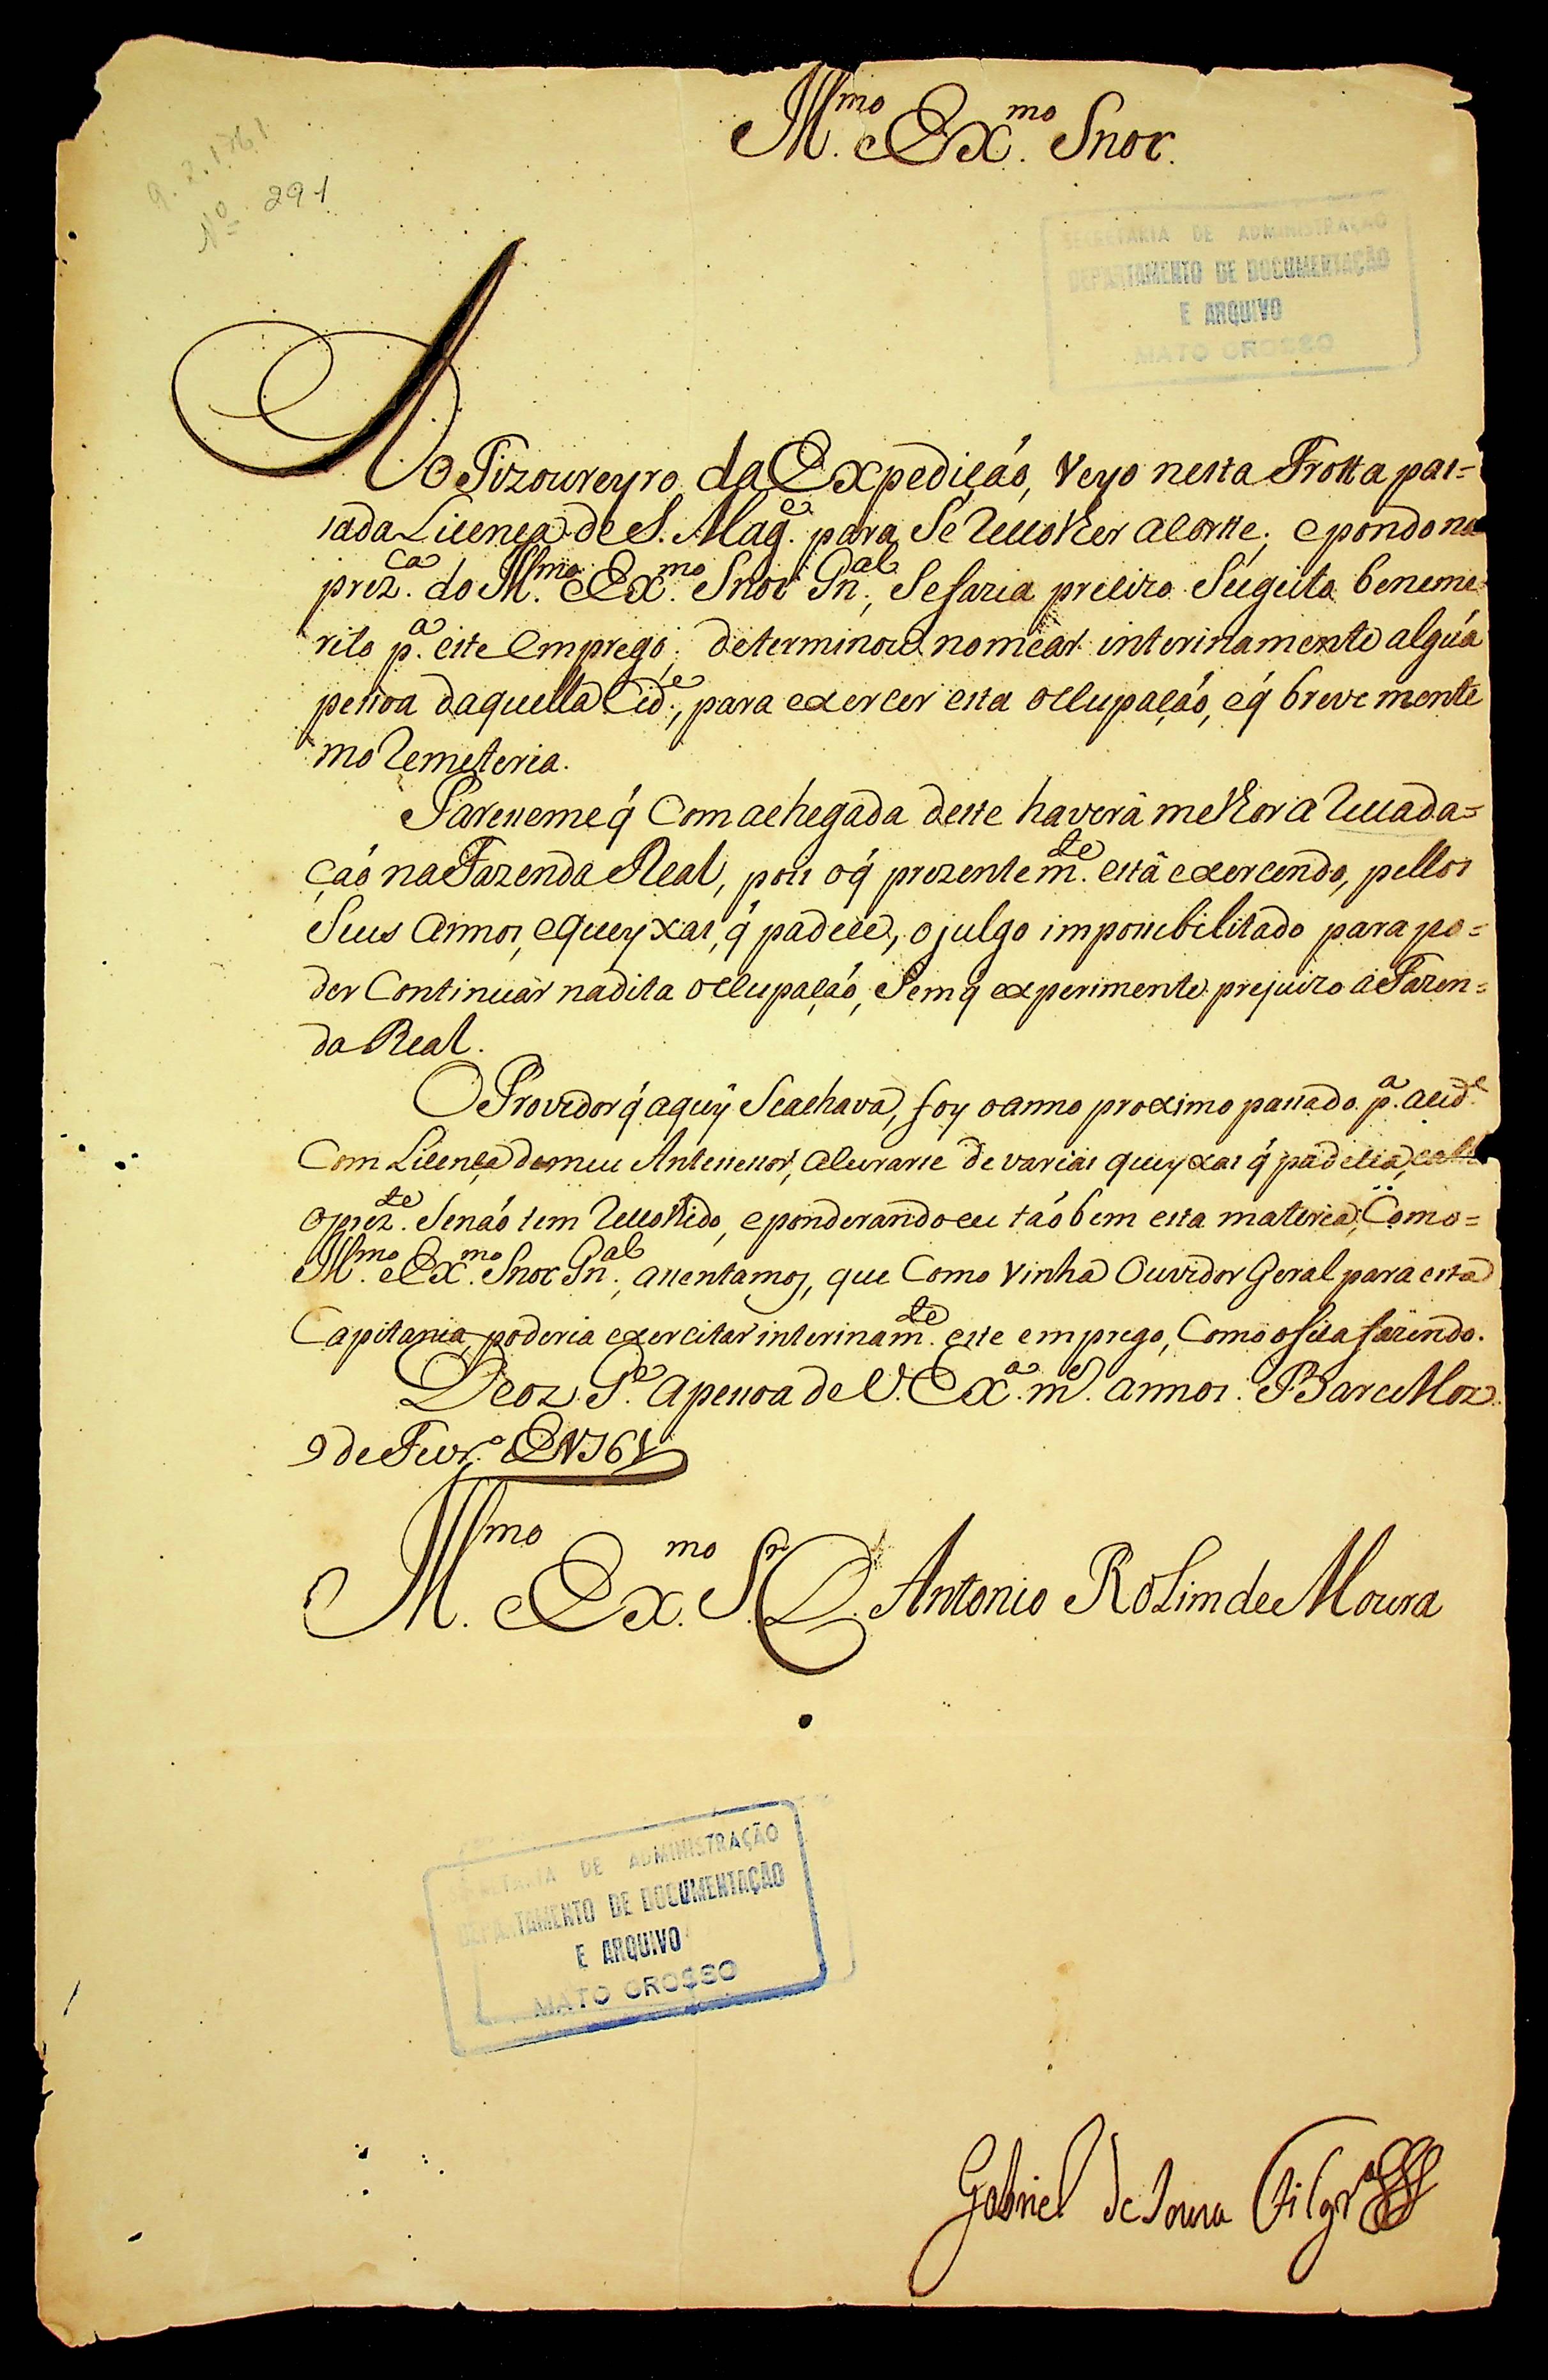 Ill.mo e Ex.mo Snor.
9.2.1761
Nº 291
SECRETARIA DE ADMINISTRAÇÃO
DEPARTAMENTO DE DOCUMENTAÇÃO
E ARQUIVO
MATO GROSSO
Ao Tizoureyro da Expedição, veyo nesta Frotta pas=
sada Licença de S. Mag.e para Se recolher a Corte; e pondo na
prez.ca do Ill.mo e Ex.mo Snor Gn.al, Se fazia precizo Sugeito beneme
rito p.a este emprego; determinou nomear interinamente algúa
pessoa daquella Cid.e, para exercer esta occupação, e q' brevemente
mo remeteria.
Paresseme q' Com a chegada deste haverâ melhor arrecada=
ção na Fazenda Real, pois o q' prezentem.te està exercendo, pellos
Seus annos, e queyxas, q' padece, o julgo impossibilitado para po=
der Continuàr na dita occupação, Sem q' experimente prejuizo a Fazen=
da Real.
O Provedor q' aquy Se achava, foy o anno proximo passado p.a a cid.e
Com Licença do meu Antessessor, a curarse de varias queyxas q' padecia, e athe
o prez.te Se não tem recolhido, e ponderando eu tão bem esta materia, Com o=
Ill.mo e Ex.mo Snor Gn.al; assentamos, que Como vinha Ouvidor Geral para esta
Capitania, poderia exercitar interinam.te este emprego, Como o fica fazendo.
Deoz G.e a pessoa de V. Ex.a m.s annos. Barcellos
9 de Fevr.o de 1761
Ill.mo e Ex.mo S.r D. Antonio Rolim de Moura
SECRETARIA DE ADMINISTRAÇÃO
DEPARTAMENTO DE DOCUMENTAÇÃO
E ARQUIVO
MATO GROSSO
Gabriel de Souza Filgr.as